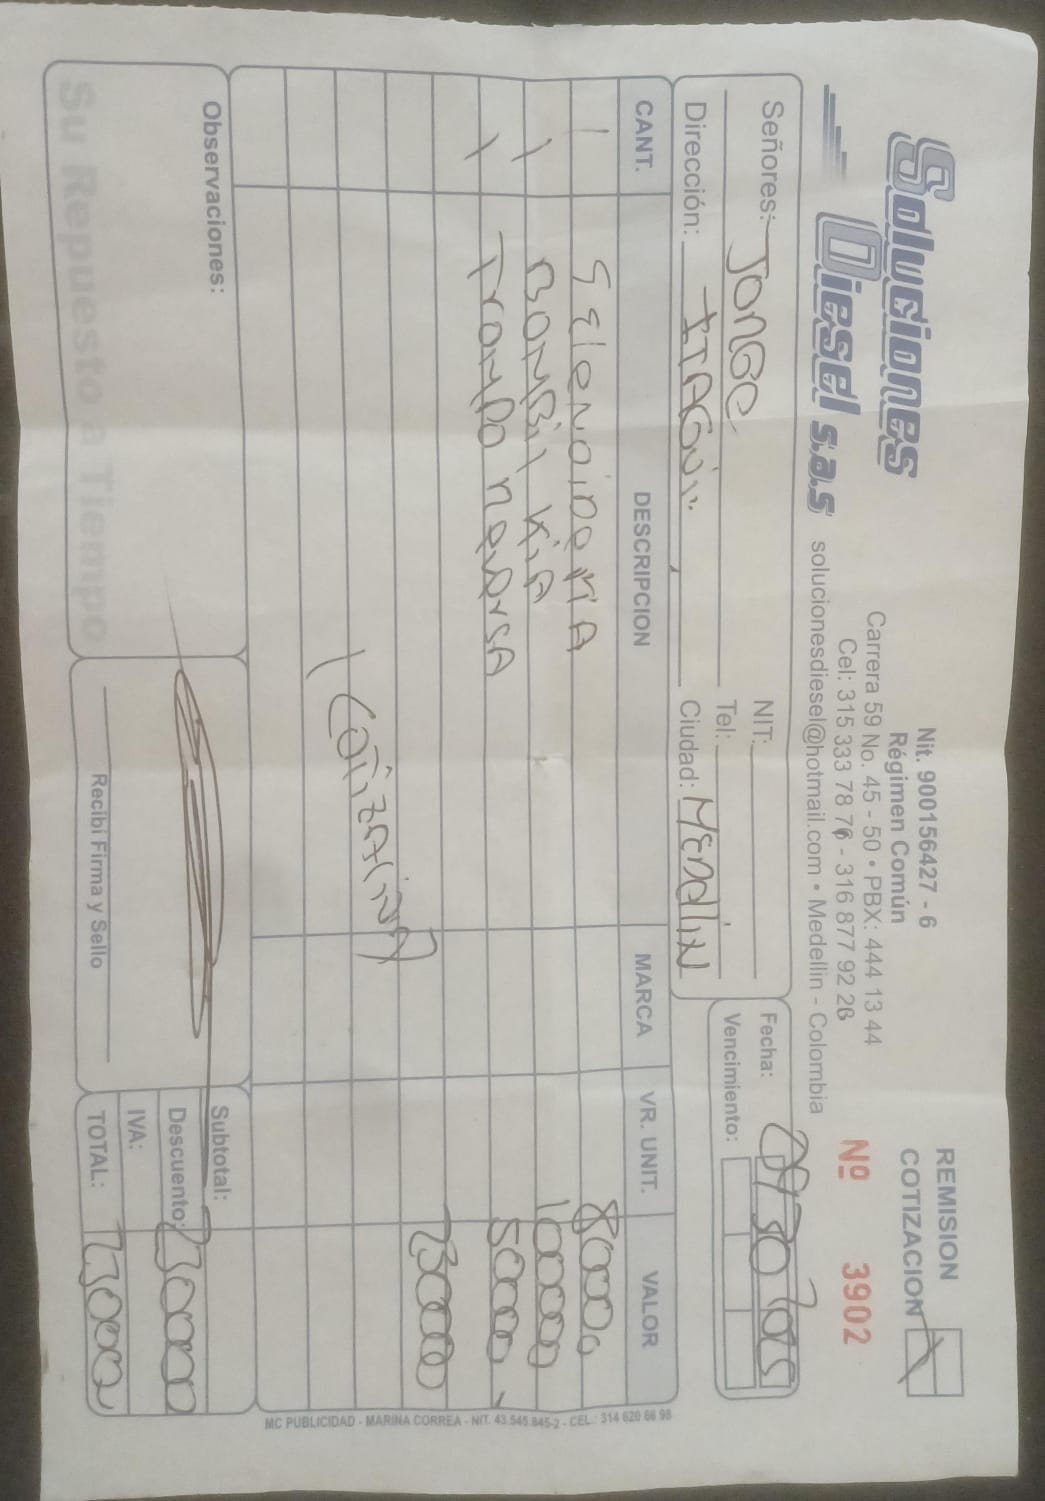 Soluciones
Diesel s.a.s
Nit. 900156427 - 6
Régimen Común
Carrera 59 No. 45 - 50 • PBX: 444 13 44
Cel: 315 333 78 76 - 316 877 92 26
solucionesdiesel@hotmail.com • Medellin - Colombia
REMISION
COTIZACION
Nº 3902
Señores: JORGE
NIT:
Tel:
Dirección: ITAGUI
Ciudad: MEDELLIN
Fecha:
Vencimiento:
CANT. DESCRIPCION MARCA VR. UNIT. VALOR
1 80000
1 BOMBIN KIA 100000
1 50000
230000
Observaciones:
Su Repuesto a Tiempo
Recibí Firma y Sello
Subtotal:
Descuento: 230000
IVA:
TOTAL: 230000
MC PUBLICIDAD - MARINA CORREA - NIT. 43.545.845-2 - CEL.: 314 620 66 98